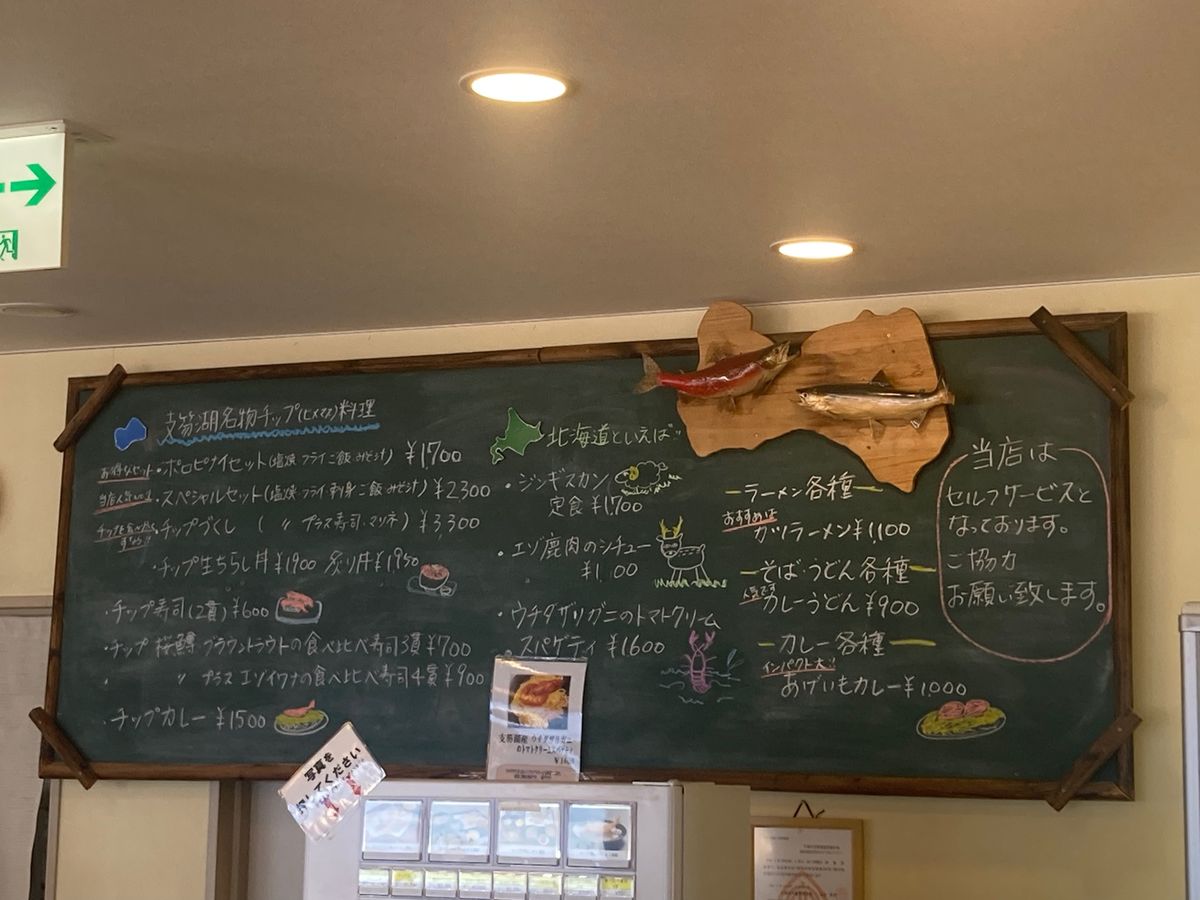 支笏湖名物チップ(ヒメマス)料理
お得なセット・ポロピナイセット(塩焼 フライ ご飯 みそ汁) ¥1700
当店人気No.1・スペシャルセット(塩焼 フライ 刺身 ご飯 みそ汁) ¥2300
チップづくし ( 〃 プラス寿司・マリネ) ¥3,300
・チップ生ちらし丼 ¥1900 炙り丼 ¥1950
・チップ寿司(2貫) ¥600
・チップ 桜鱒 ブラウントラウトの食べ比べ寿司3貫 ¥700
・ 〃 プラス エゾイワナの食べ比べ寿司4貫 ¥900
・チップカレー ¥1500
北海道といえば‥
・ジンギスカン
定食 ¥1,700
・エゾ鹿肉のシチュー
・ウチダザリガニのトマトクリーム
スパゲティ ¥1600
ーラーメン各種ー
おすすめは
カツラーメン ¥1,100
ーそば・うどん各種ー
人気です
カレーうどん ¥900
ーカレー各種ー
インパクト大!!
あげいもカレー ¥1,000
当店は
セルフサービスと
なっております。
ご協力
お願い致します。
支笏湖産 ウチダザリガニ
のトマトクリームスパゲティ
写真を
ください